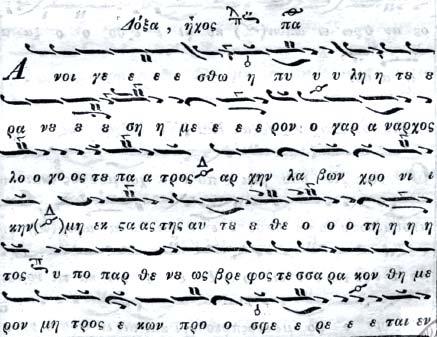 Δόξα, ἦχος πα
Α νοι γε ε ε ε σθω η πυ υ υ λη η τȣ ȣ
ρα νȣ ȣ ȣ ση η με ε ε ε ρον ο γαρ α ναρχος
λο ο γο ος τȣ πα α τρος αρ χην λα βων χρο νι ι
κην μη εκ ςα ας της αυ τȣ ȣ θε ο ο ο τη η η η
τος υ πο παρ θε νȣ ως βρε φος τε σσα ρα κον θη με
ρον μη τρος ε κων προ ο σφε ε ρε ε ε ται εν